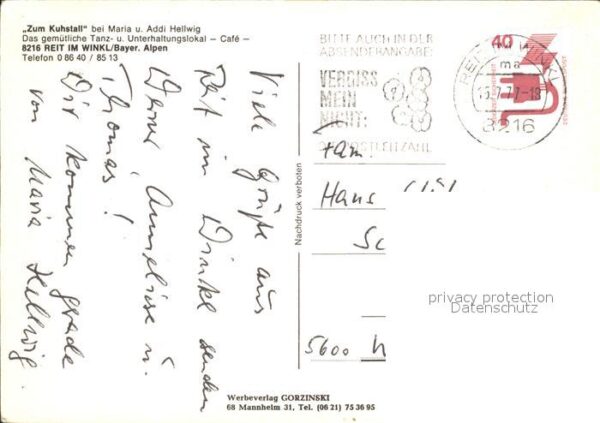 „Zum Kuhstall" bei Maria u. Addi Hellwig
Das gemütliche Tanz- u. Unterhaltungslokal – Café –
8216 REIT IM WINKL/Bayer. Alpen
Telefon 0 86 40 / 85 13
Viele Grüße aus
Reit im Winkel senden
Werner Anneliese u.
Thomas!
Wir kommen grade
von Maria Hellwig.
Nachdruck verboten
BITTE AUCH IN DER
ABSENDERANGABE:
VERGISS
MEIN
NICHT:
POSTLEITZAHL
REIT IM WINKL
ma
15.7.77-18
8216
40
Fam.
Hans
Sc
5600
privacy protection
Datenschutz
Werbeverlag GORZINSKI
68 Mannheim 31, Tel. (06 21) 75 36 95